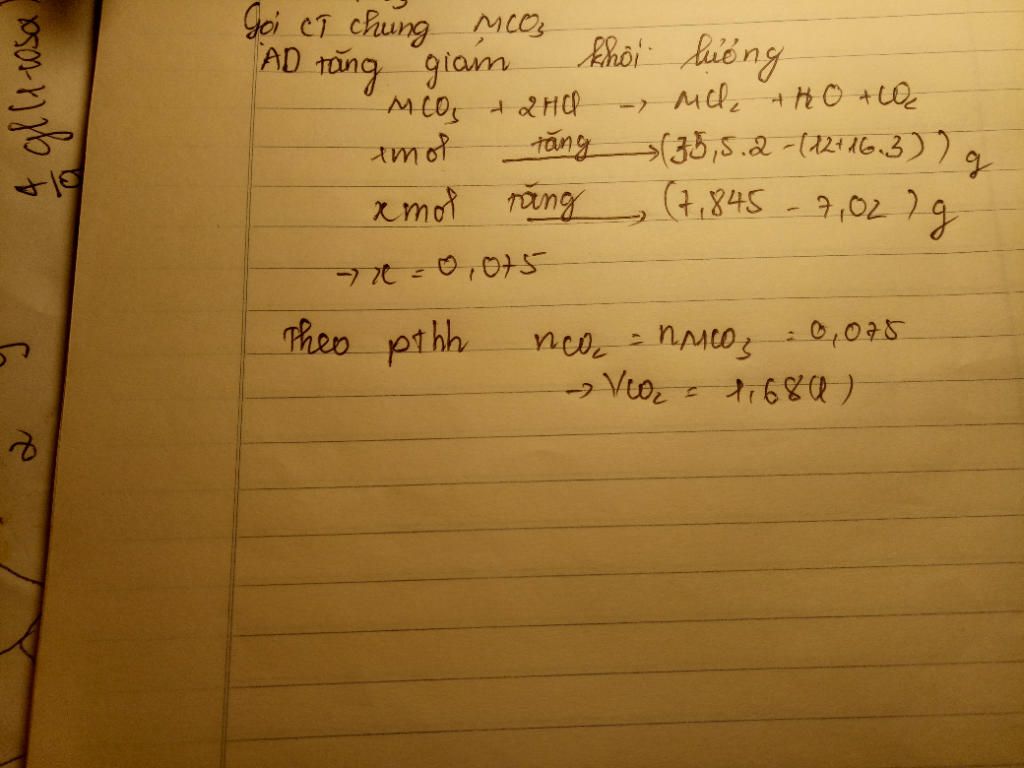 Gọi CT chung MCO3
AD tăng giảm khối lượng
MCO3 + 2HCl → MCl2 + H2O + CO2
1mol tăng → (35,5.2 - (12+16.3)) g
x mol tăng → (7,845 - 7,02) g
→ x = 0,075
Theo pthh nCO2 = nMCO3 = 0,075
→ VCO2 = 1,68(l)